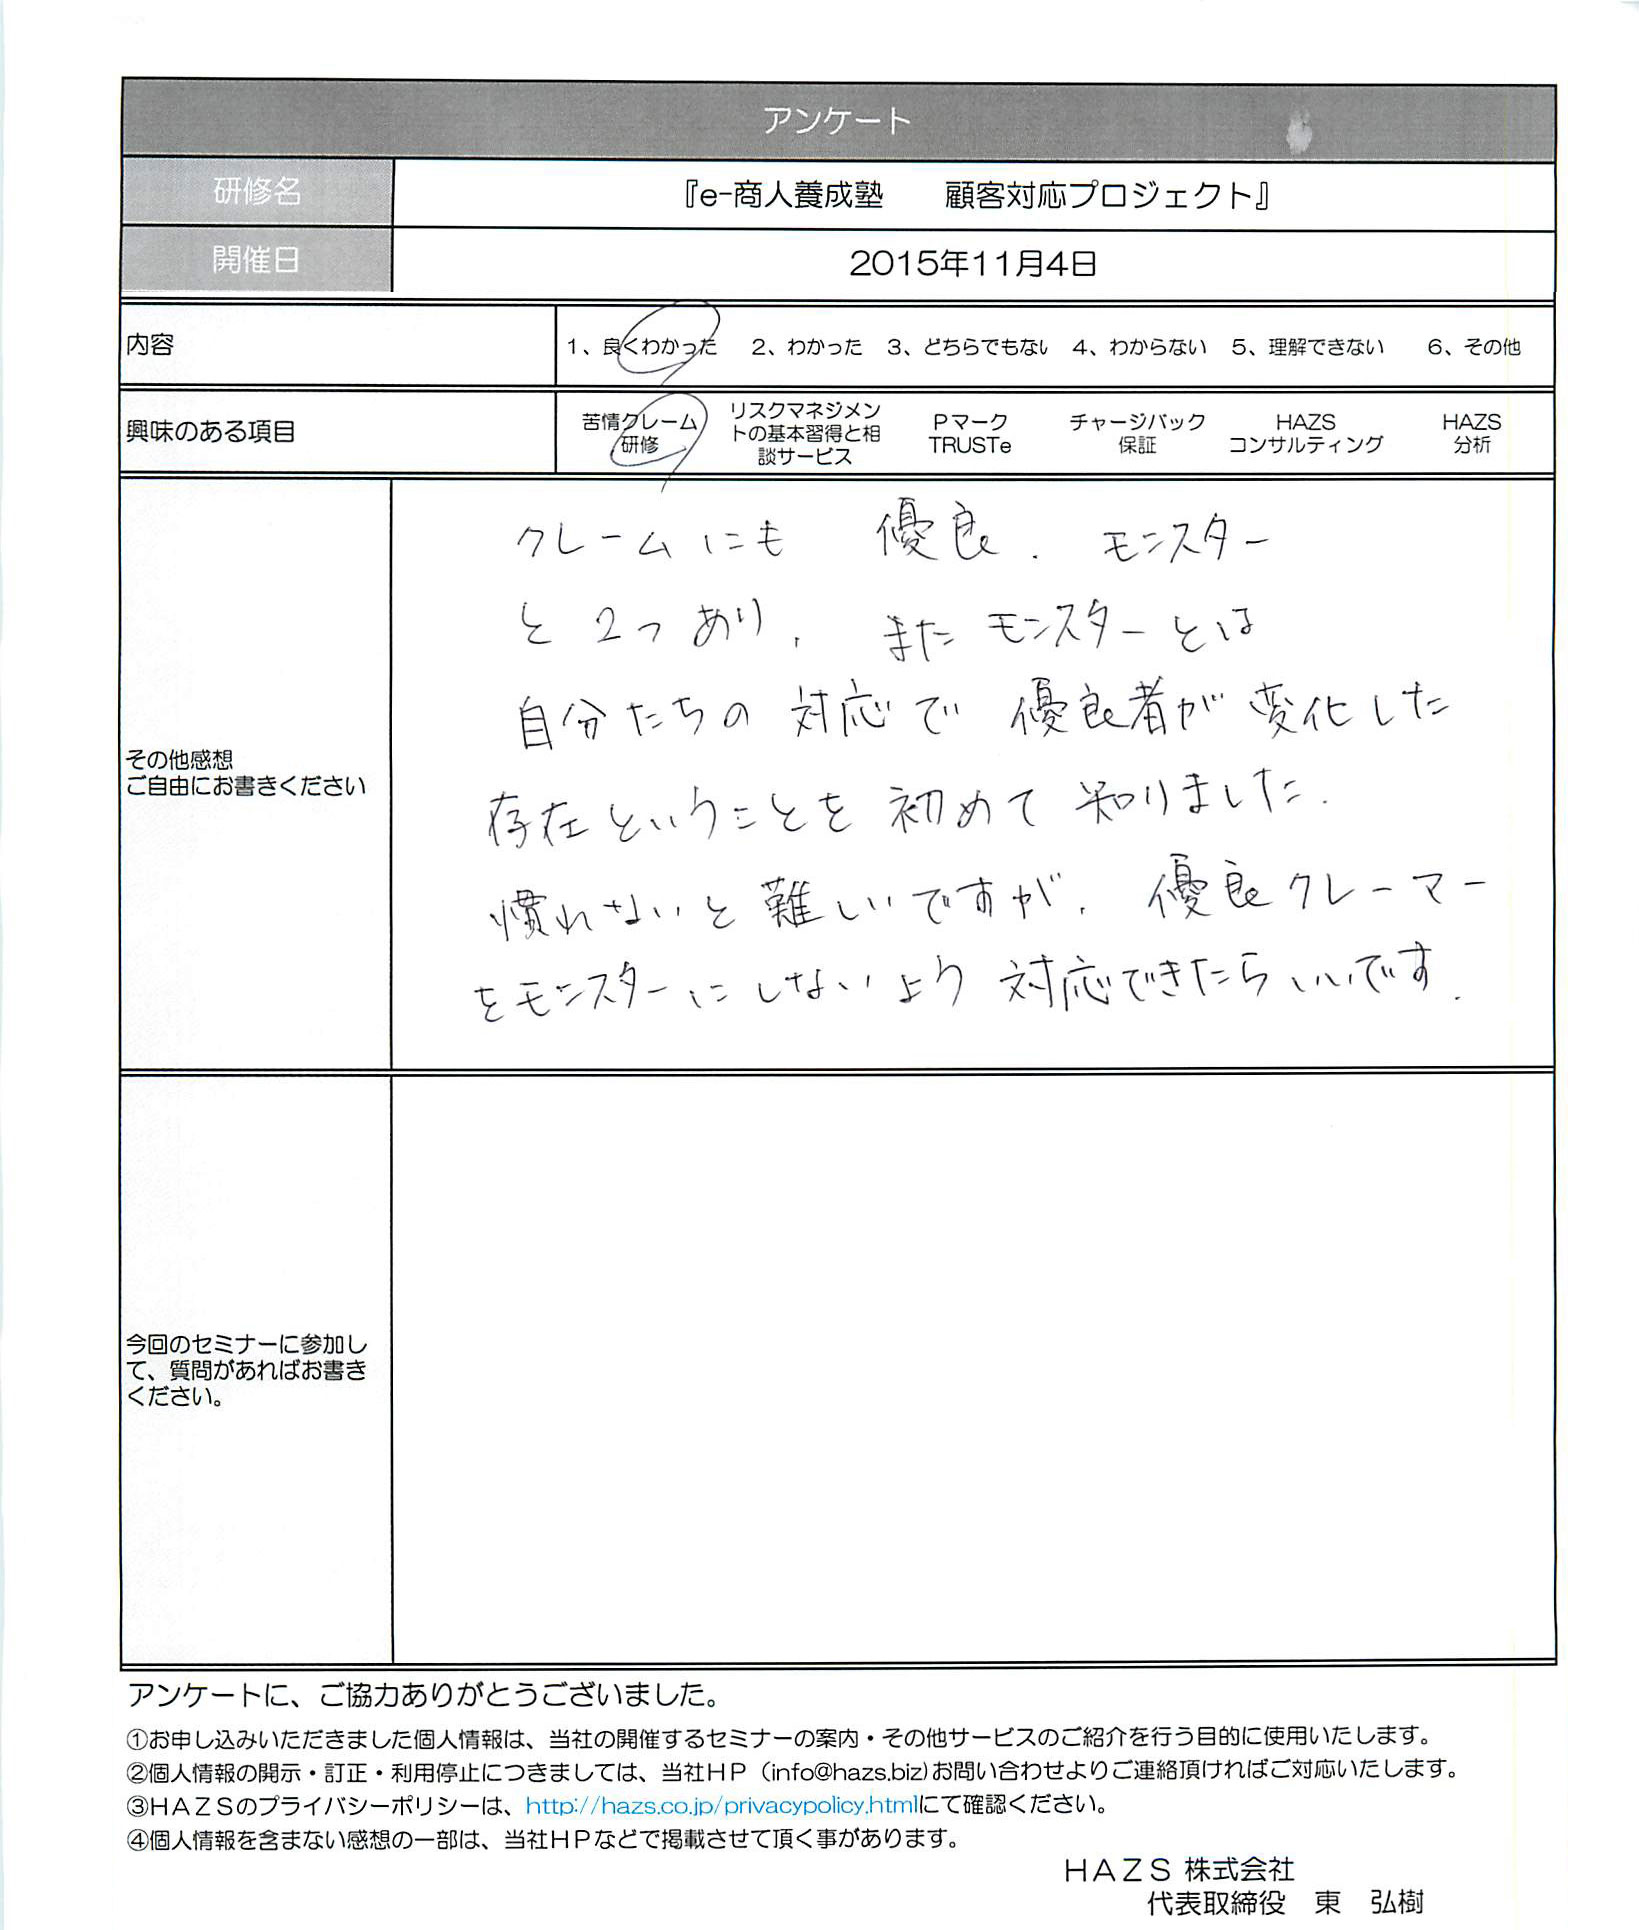 アンケート
研修名 『e-商人養成塾　　顧客対応プロジェクト』
開催日 2015年11月4日
内容 1、良くわかった 2、わかった 3、どちらでもない 4、わからない 5、理解できない 6、その他
興味のある項目
苦情クレーム
研修
リスクマネジメン
トの基本習得と相
談サービス
Pマーク
TRUSTe
チャージバック
保証
HAZS
コンサルティング
HAZS
分析
その他感想
ご自由にお書きください
クレームにも 優良、モンスター
と2つあり、またモンスターとは
自分たちの対応で優良者が変化した
存在ということを初めて知りました。
慣れないと難しいですが、優良クレーマー
をモンスターにしないよう対応できたらいいです。
今回のセミナーに参加し
て、質問があればお書き
ください。
アンケートに、ご協力ありがとうございました。
①お申し込みいただきました個人情報は、当社の開催するセミナーの案内・その他サービスのご紹介を行う目的に使用いたします。
②個人情報の開示・訂正・利用停止につきましては、当社HP（info@hazs.biz)お問い合わせよりご連絡頂ければご対応いたします。
③HAZSのプライバシーポリシーは、http://hazs.co.jp/privacypolicy.htmlにて確認ください。
④個人情報を含まない感想の一部は、当社HPなどで掲載させて頂く事があります。
HAZS 株式会社
代表取締役　東　弘樹